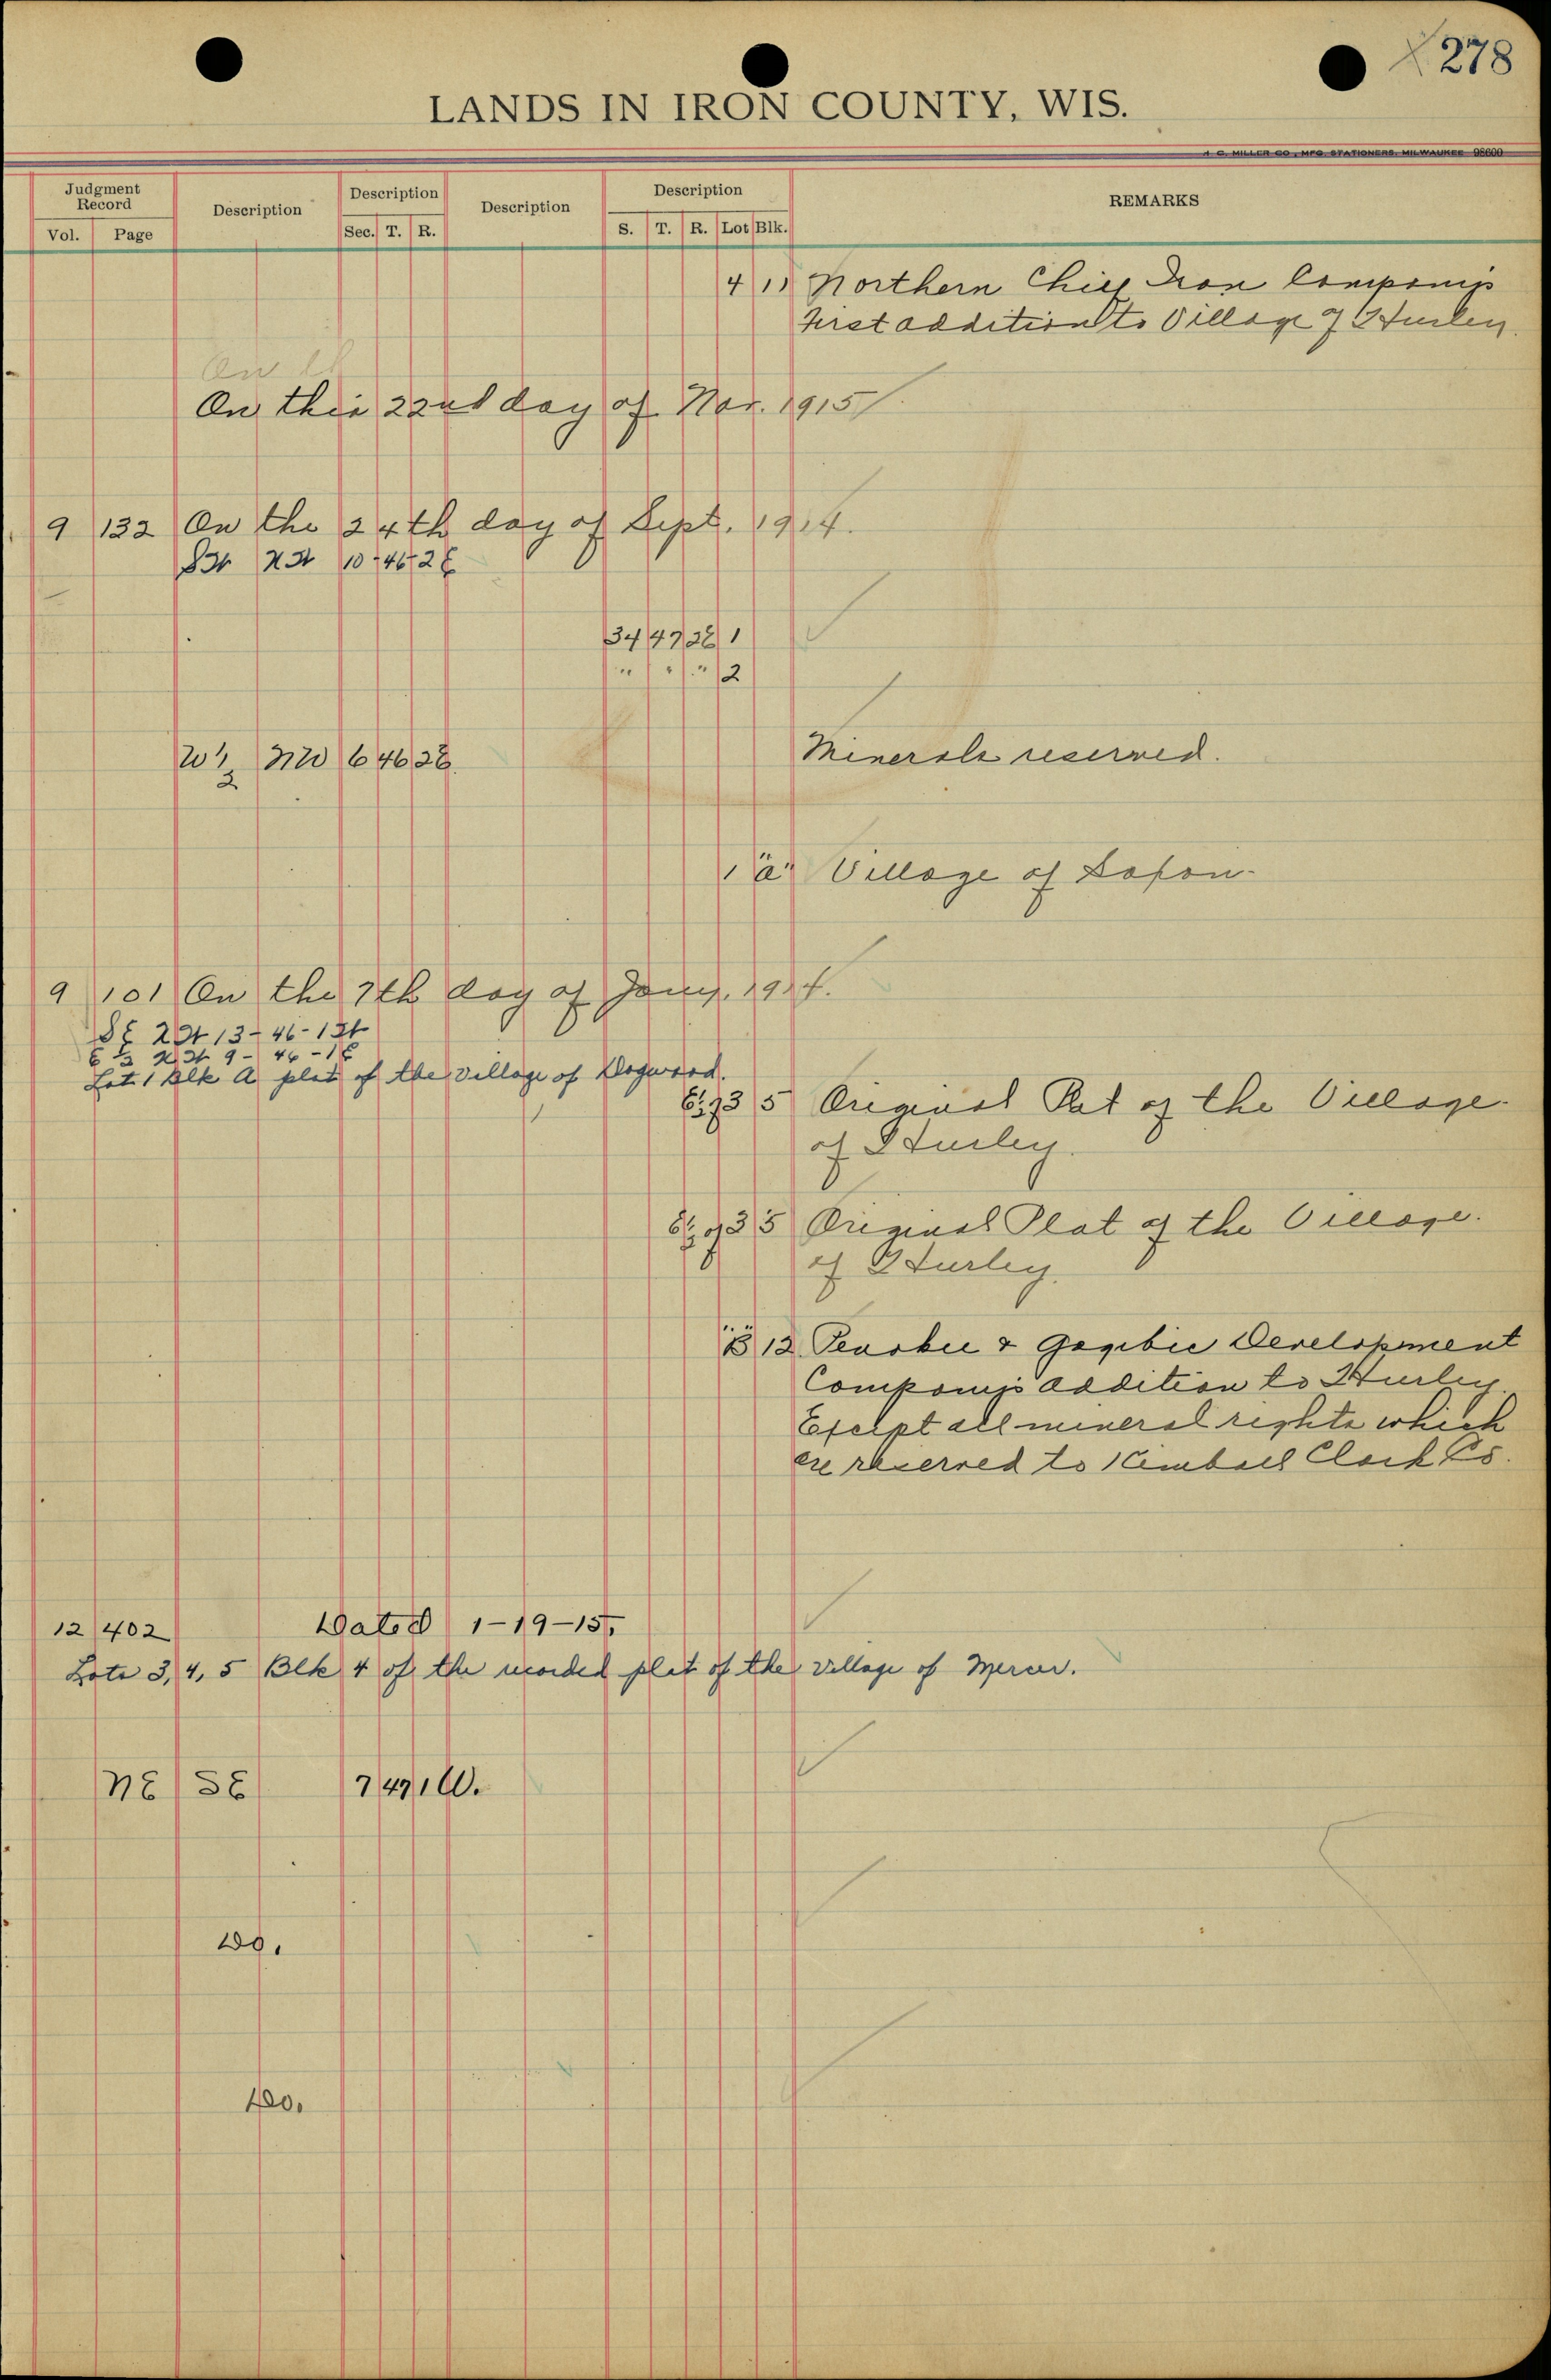 278
LANDS IN IRON COUNTY, WIS.
H. C. MILLER CO., MFG. STATIONERS, MILWAUKEE 98600
Judgment Record Description Description Description Description REMARKS
Vol. Page Sec. T. R. S. T. R. Lot Blk.
4 11 Northern Chief Iron Companys
first addition to Village of Hurley.
On
On this 22nd day of Nov. 1915
9 132 On the 24th day of Sept. 1914.
SW NW 10-46-2E
34 47 2E 1
" " " 2
W½ NW 6 46 2E
Minerals reserved.
1 "a" Village of Saxon.
9 101 On the 7th day of Jany. 1914.
SE NW 13-46-1W
E ½ NW 9-46-1E
Lot 1 Blk A plat of the village of Dogwood.
E½ of 3 5 Original Plat of the Village
of Hurley.
E½ of 3 5 Original Plat of the Village
of Hurley.
"B" 12 Penokee & Gogebic Development
Companys addition to Hurley
Except all mineral rights which
are reserved to Kimball Clark Co.
12 402 Dated 1-19-15,
Lots 3, 4, 5 Blk 4 of the recorded plat of the village of Mercer.
NE SE 7 47 1 W.
Do.
Do.